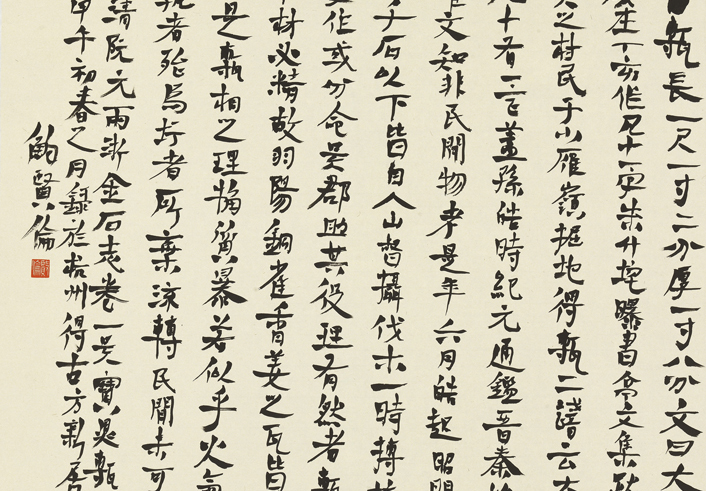 甎長一尺一寸二分厚一寸八分文曰大
在丁亥作凡十一字朱竹垞曝書亭文集跋
之村民于小雁嶺掘地得甎二諸云大
十有一字蓋孫皓時紀元通鑑晉秦始
文知非民間物考是年六月皓起昭明
千石以下皆自入山督攝伐木一時摶埴
作或分命吳郡助其役理有然者甎
材必精故羽陽銅雀香姜之瓦皆
是甎相之理獷質暴若似乎火氣
執者殆為斤者所棄流轉民間未可
清阮元兩浙金石志卷一吳寶鼎甎
甲午初春之月錄於杭州得古方新居
鮑賢倫